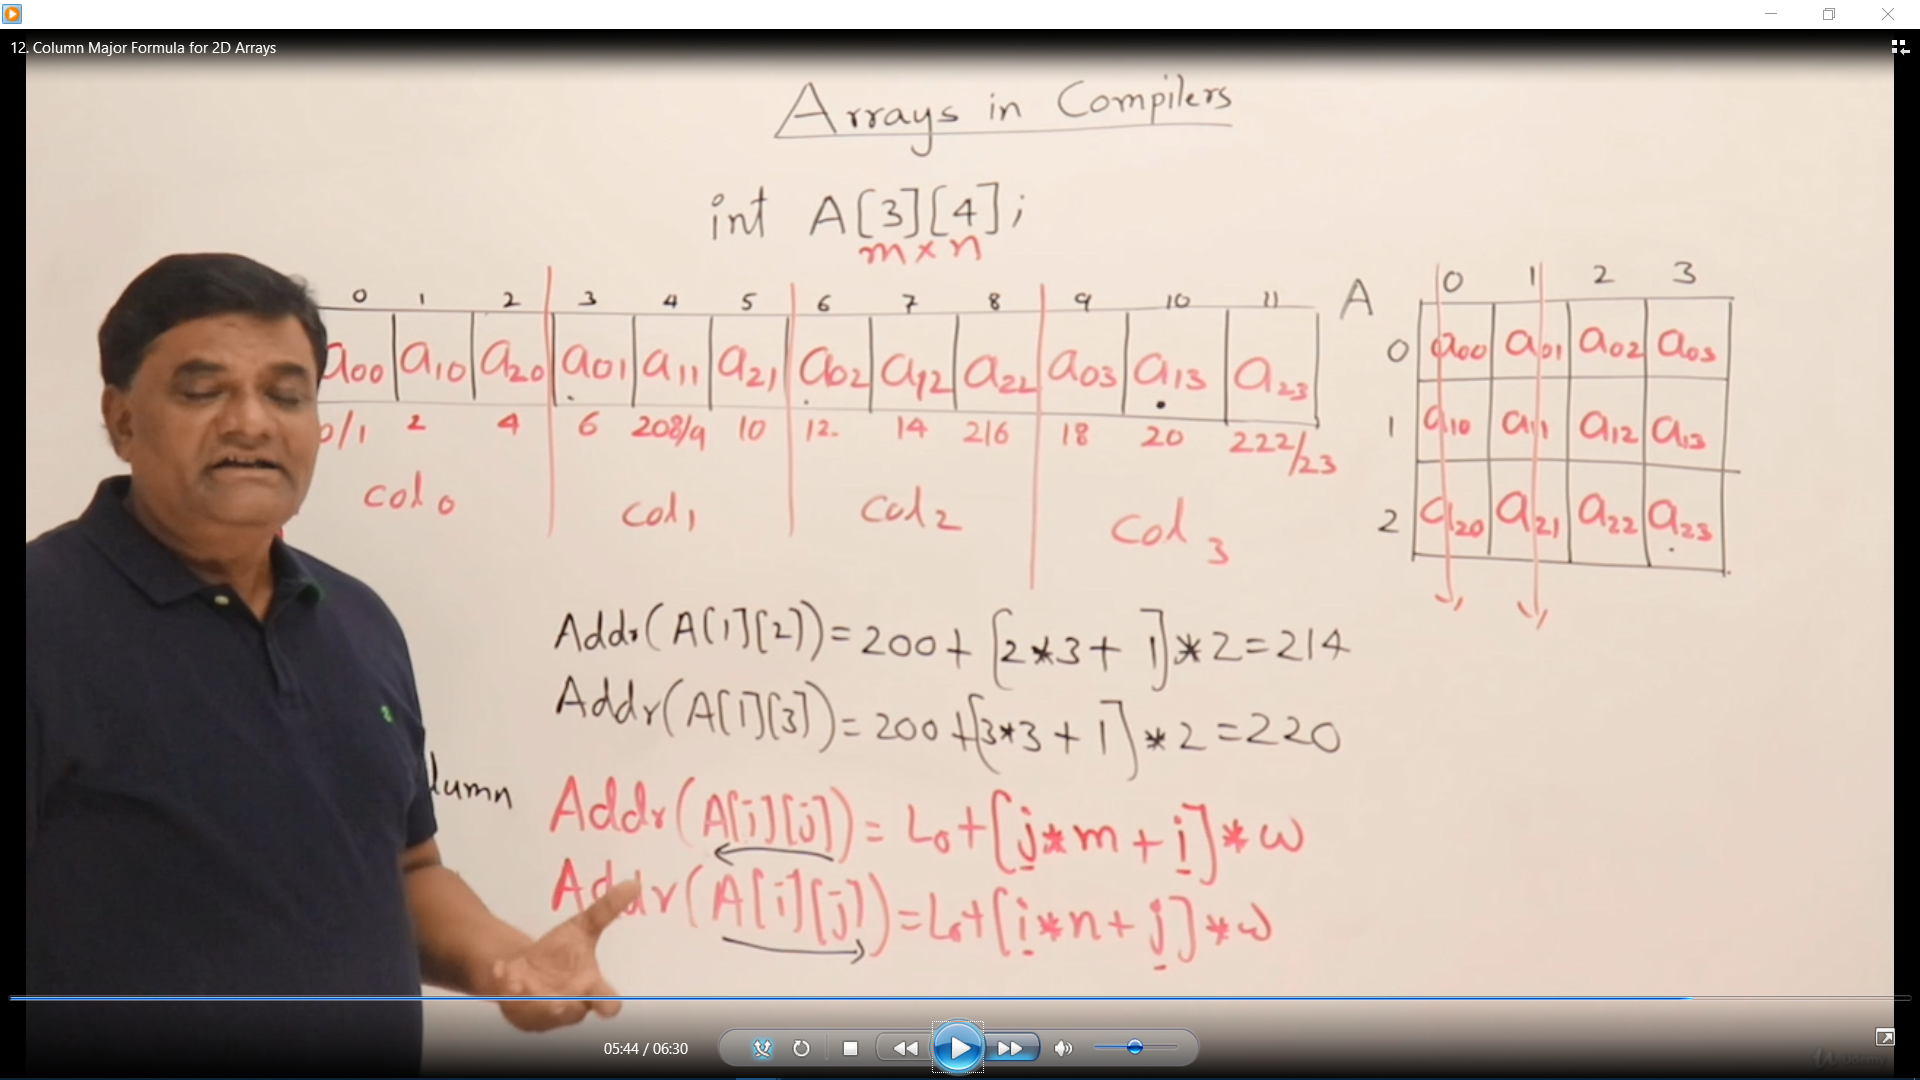 12. Column Major Formula for 2D Arrays
Arrays in Compilers
int A[3][4];
m × n
0 1 2 3 4 5 6 7 8 9 10 11
a00 a10 a20 a01 a11 a21 a02 a12 a22 a03 a13 a23
0/1 2 4 6 208/9 10 12. 14 216 18 20 222/23
col 0 col 1 col 2 col 3
A 0 1 2 3
0 a00 a01 a02 a03
1 a10 a11 a12 a13
2 a20 a21 a22 a23
Addr(A[1][2]) = 200 + [2*3 + 1] * 2 = 214
Addr(A[1][3]) = 200 + [3*3 + 1] * 2 = 220
lumn
Addr(A[i][j]) = L0 + [j * m + i] * w
Addr(A[i][j]) = L0 + [i * n + j] * w
05:44 / 06:30
Udemy